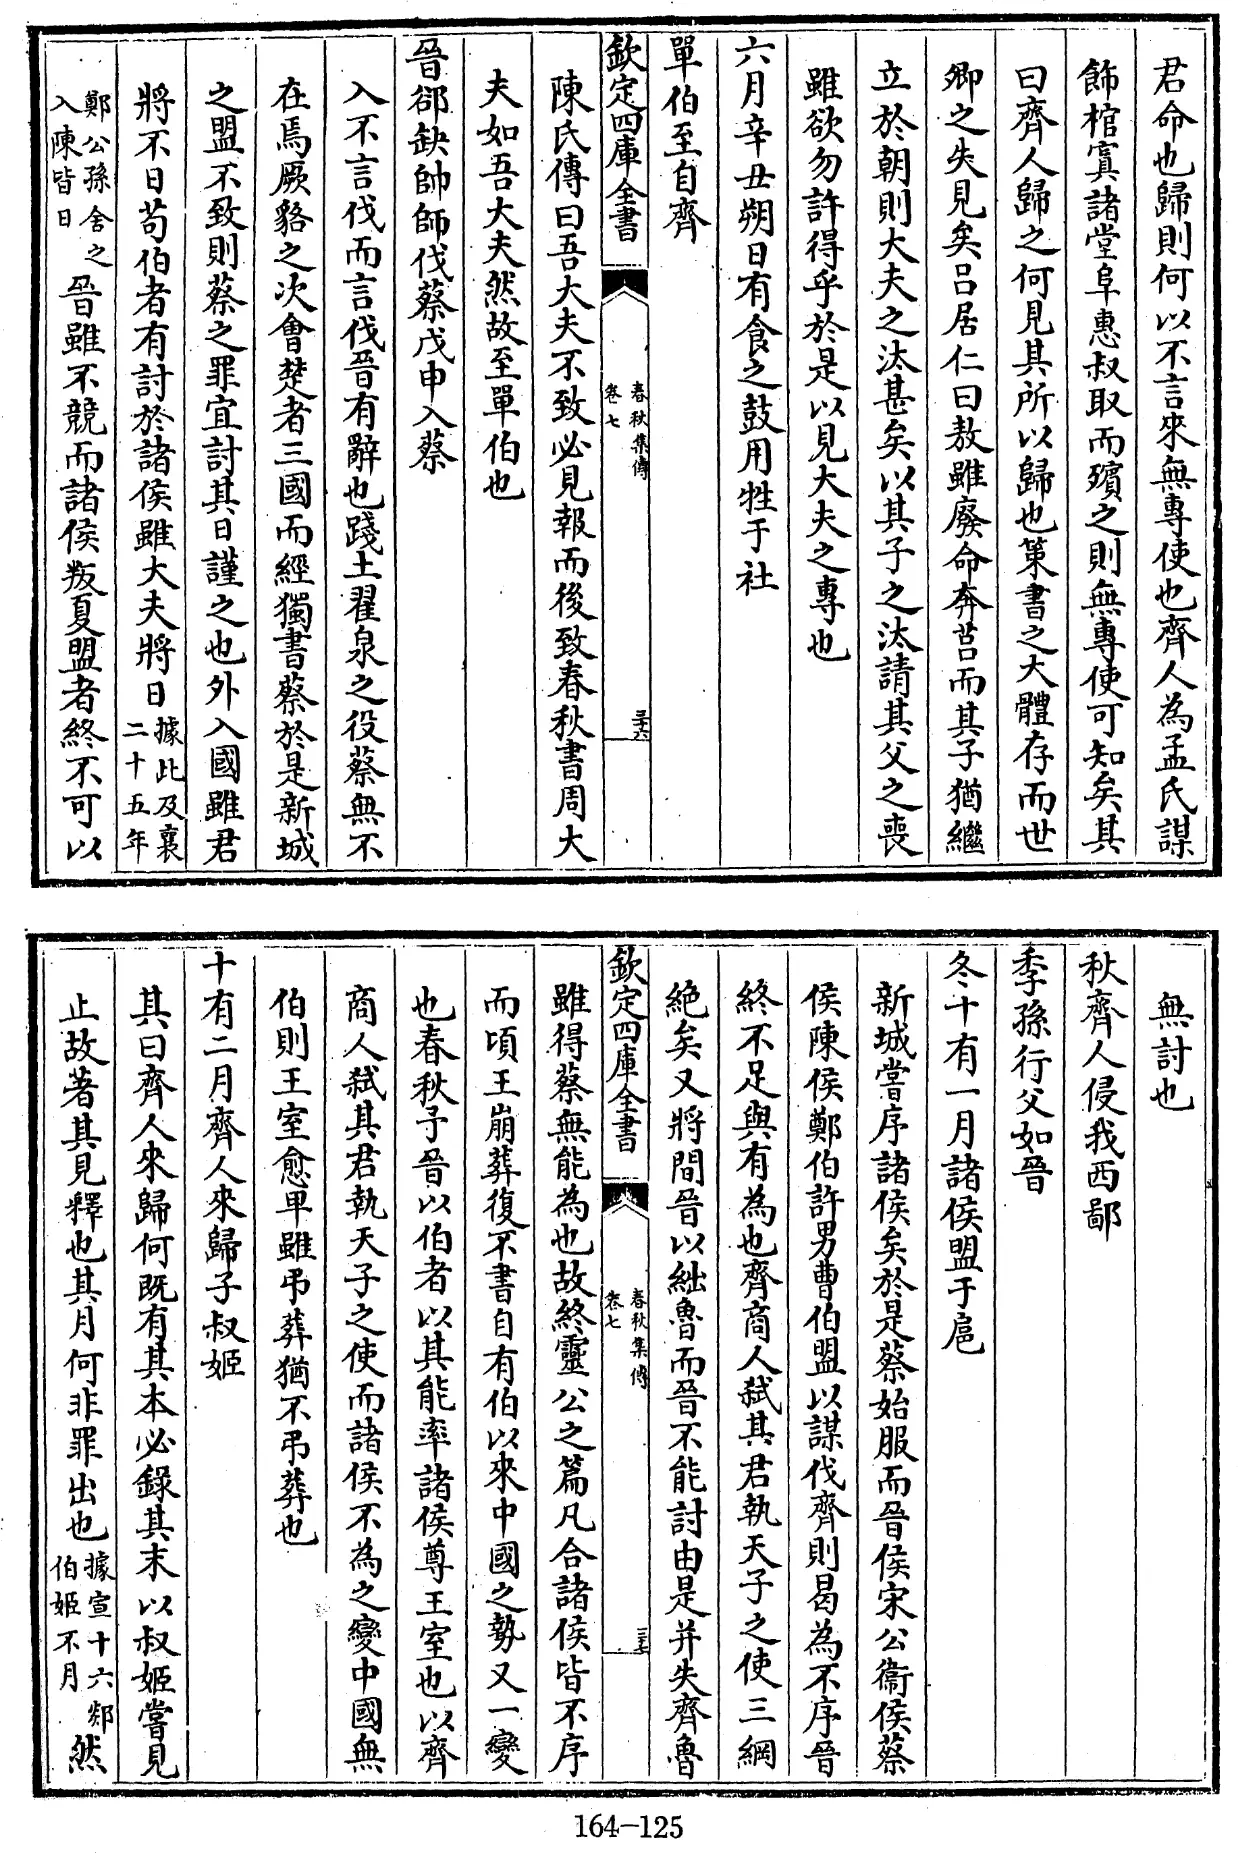 君命也歸則何以不言來無專使也齊人為孟氏謀
飾棺寘諸堂阜惠叔取而殯之則無專使可知矣其
曰齊人歸之何見其所以歸也策書之大體存而世
卿之失見矣呂居仁曰敖雖廢命奔莒而其子猶繼
立於朝則大夫之汰甚矣以其子之汰請其父之喪
雖欲勿許得乎於是以見大夫之專也
六月辛丑朔日有食之鼓用牲于社
單伯至自齊
欽定四庫全書
春秋集傳
卷七
三十六
陳氏傳曰吾大夫不致必見報而後致春秋書周大
夫如吾大夫然故至單伯也
晉郤缺帥師伐蔡戊申入蔡
入不言伐而言伐晉有辭也踐土翟泉之役蔡無不
在焉厥貉之次會楚者三國而經獨書蔡於是新城
之盟不致則蔡之罪宜討其日謹之也外入國雖君
將不日苟伯者有討於諸侯雖大夫將日
據此及襄
二十五年
鄭公孫舍之
入陳皆日
晉雖不競而諸侯叛夏盟者終不可以
無討也
秋齊人侵我西鄙
季孫行父如晉
冬十有一月諸侯盟于扈
新城嘗序諸侯矣於是蔡始服而晉侯宋公衞侯蔡
侯陳侯鄭伯許男曹伯盟以謀伐齊則曷為不序晉
終不足與有為也齊商人弒其君執天子之使三綱
絕矣又將間晉以絀魯而晉不能討由是并失齊魯
欽定四庫全書
春秋集傳
卷七
三十七
雖得蔡無能為也故終靈公之篇凡合諸侯皆不序
而頃王崩葬復不書自有伯以來中國之勢又一變
也春秋予晉以伯者以其能率諸侯尊王室也以齊
商人弒其君執天子之使而諸侯不為之變中國無
伯則王室愈卑雖弔葬猶不弔葬也
十有二月齊人來歸子叔姬
其曰齊人來歸何既有其本必錄其末以叔姬嘗見
止故著其見釋也其月何非罪出也
據宣十六郯
伯姬不月
然
164-125